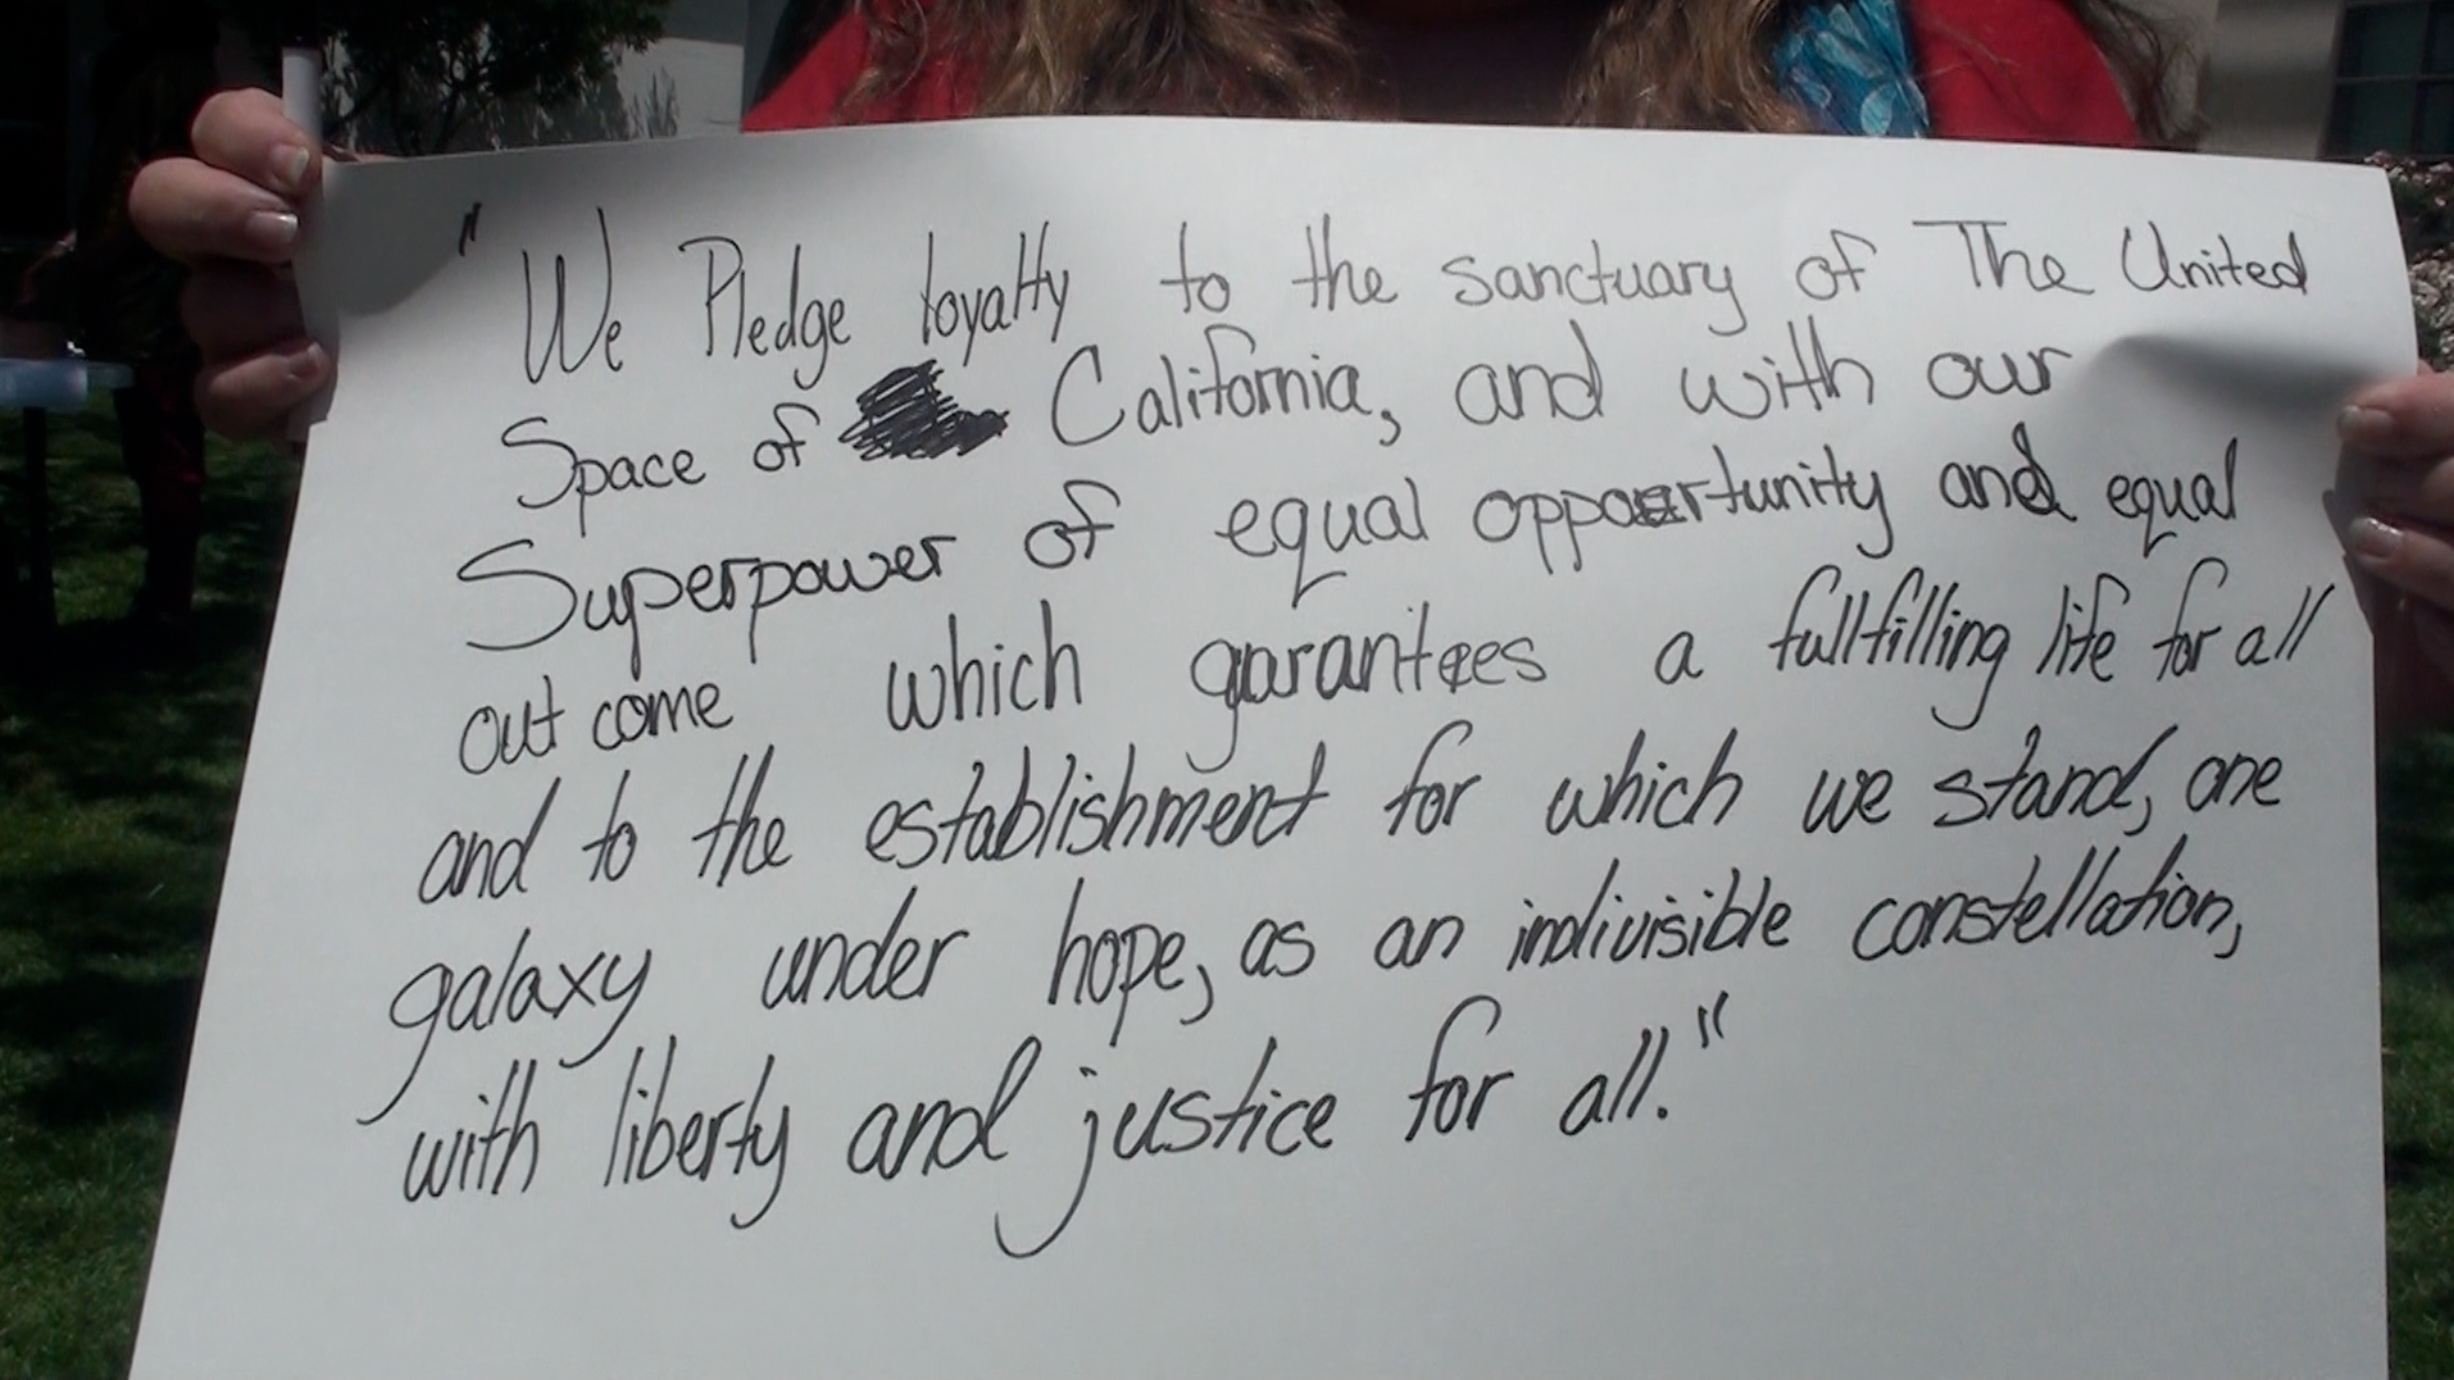 "We Pledge loyalty to the sanctuary of The United
Space of California, and with our
Superpower of equal opportunity and equal
outcome which garantees a fullfilling life for all
and to the establishment for which we stand, one
galaxy under hope, as an indivisible constellation,
with liberty and justice for all."